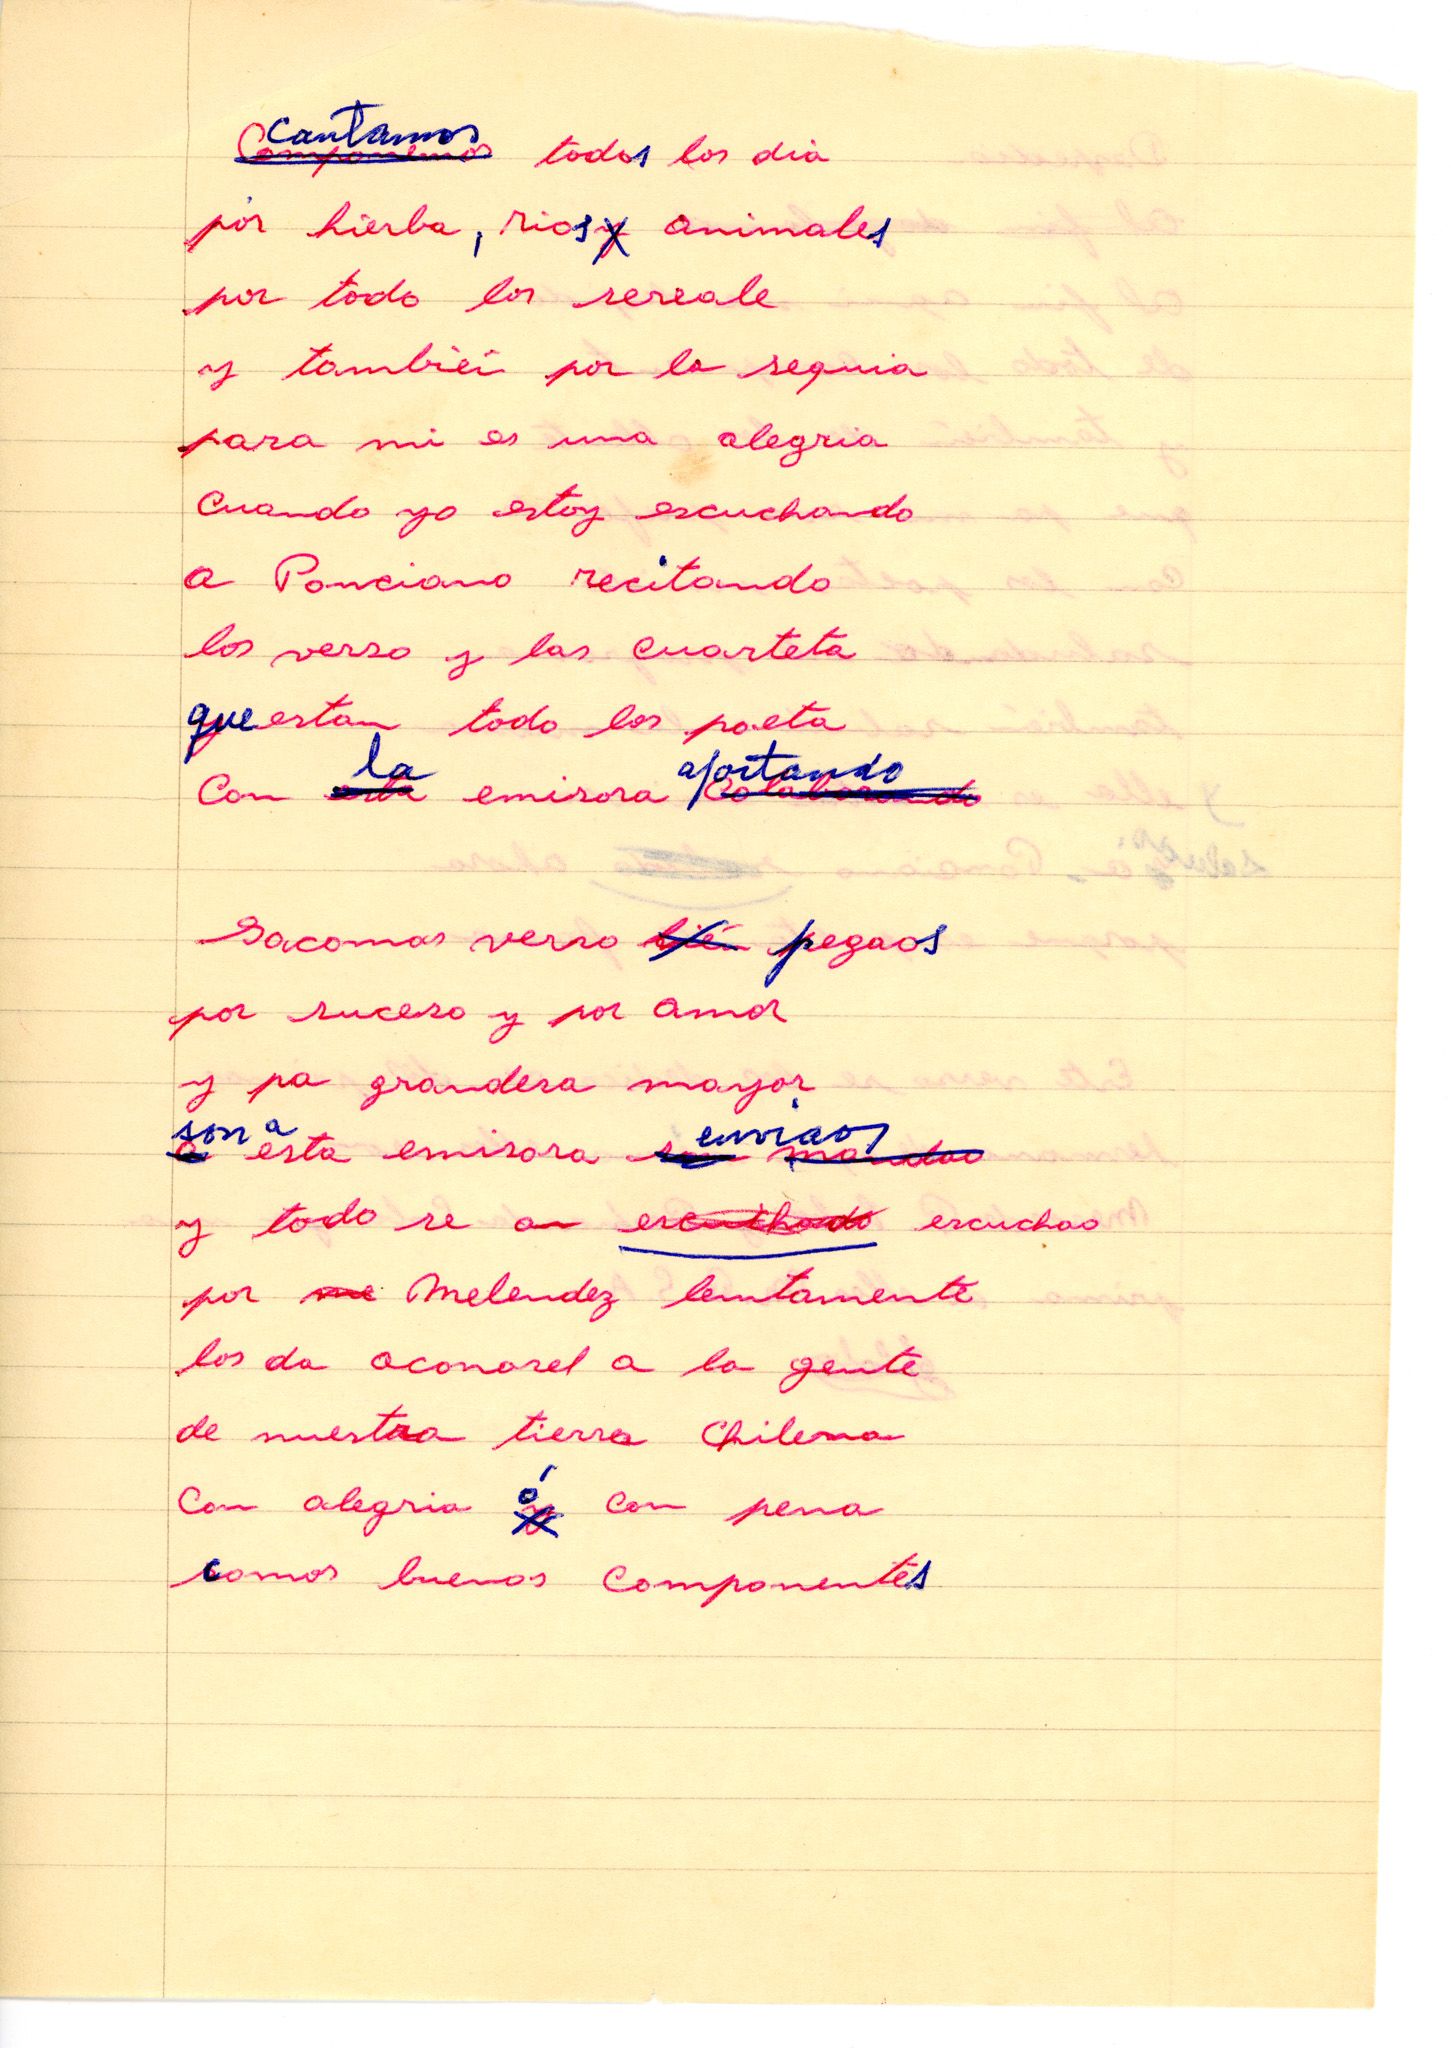 cantamos
Componemos todos los dia
por hierba, rios y animales
por todo los sereale
y tambiėi por la sequia
para mi es una alegria
cuando yo estoy escuchando
a Ponciano recitando
los verso y las cuarteta
que estan todo los poeta
la aportando
Con esta emisora Colaborando
Sacamos verso bién pegaos
por suceso y por amor
y pa grandesa mayor
son a enviaos
a esta emisora son mandao
y todo se an escuchado escuchao
por me Melendez lentamente
los da aconosel a la gente
de nuestra tierra Chilena
ó
Con alegria y con pena
comos buenos componentes